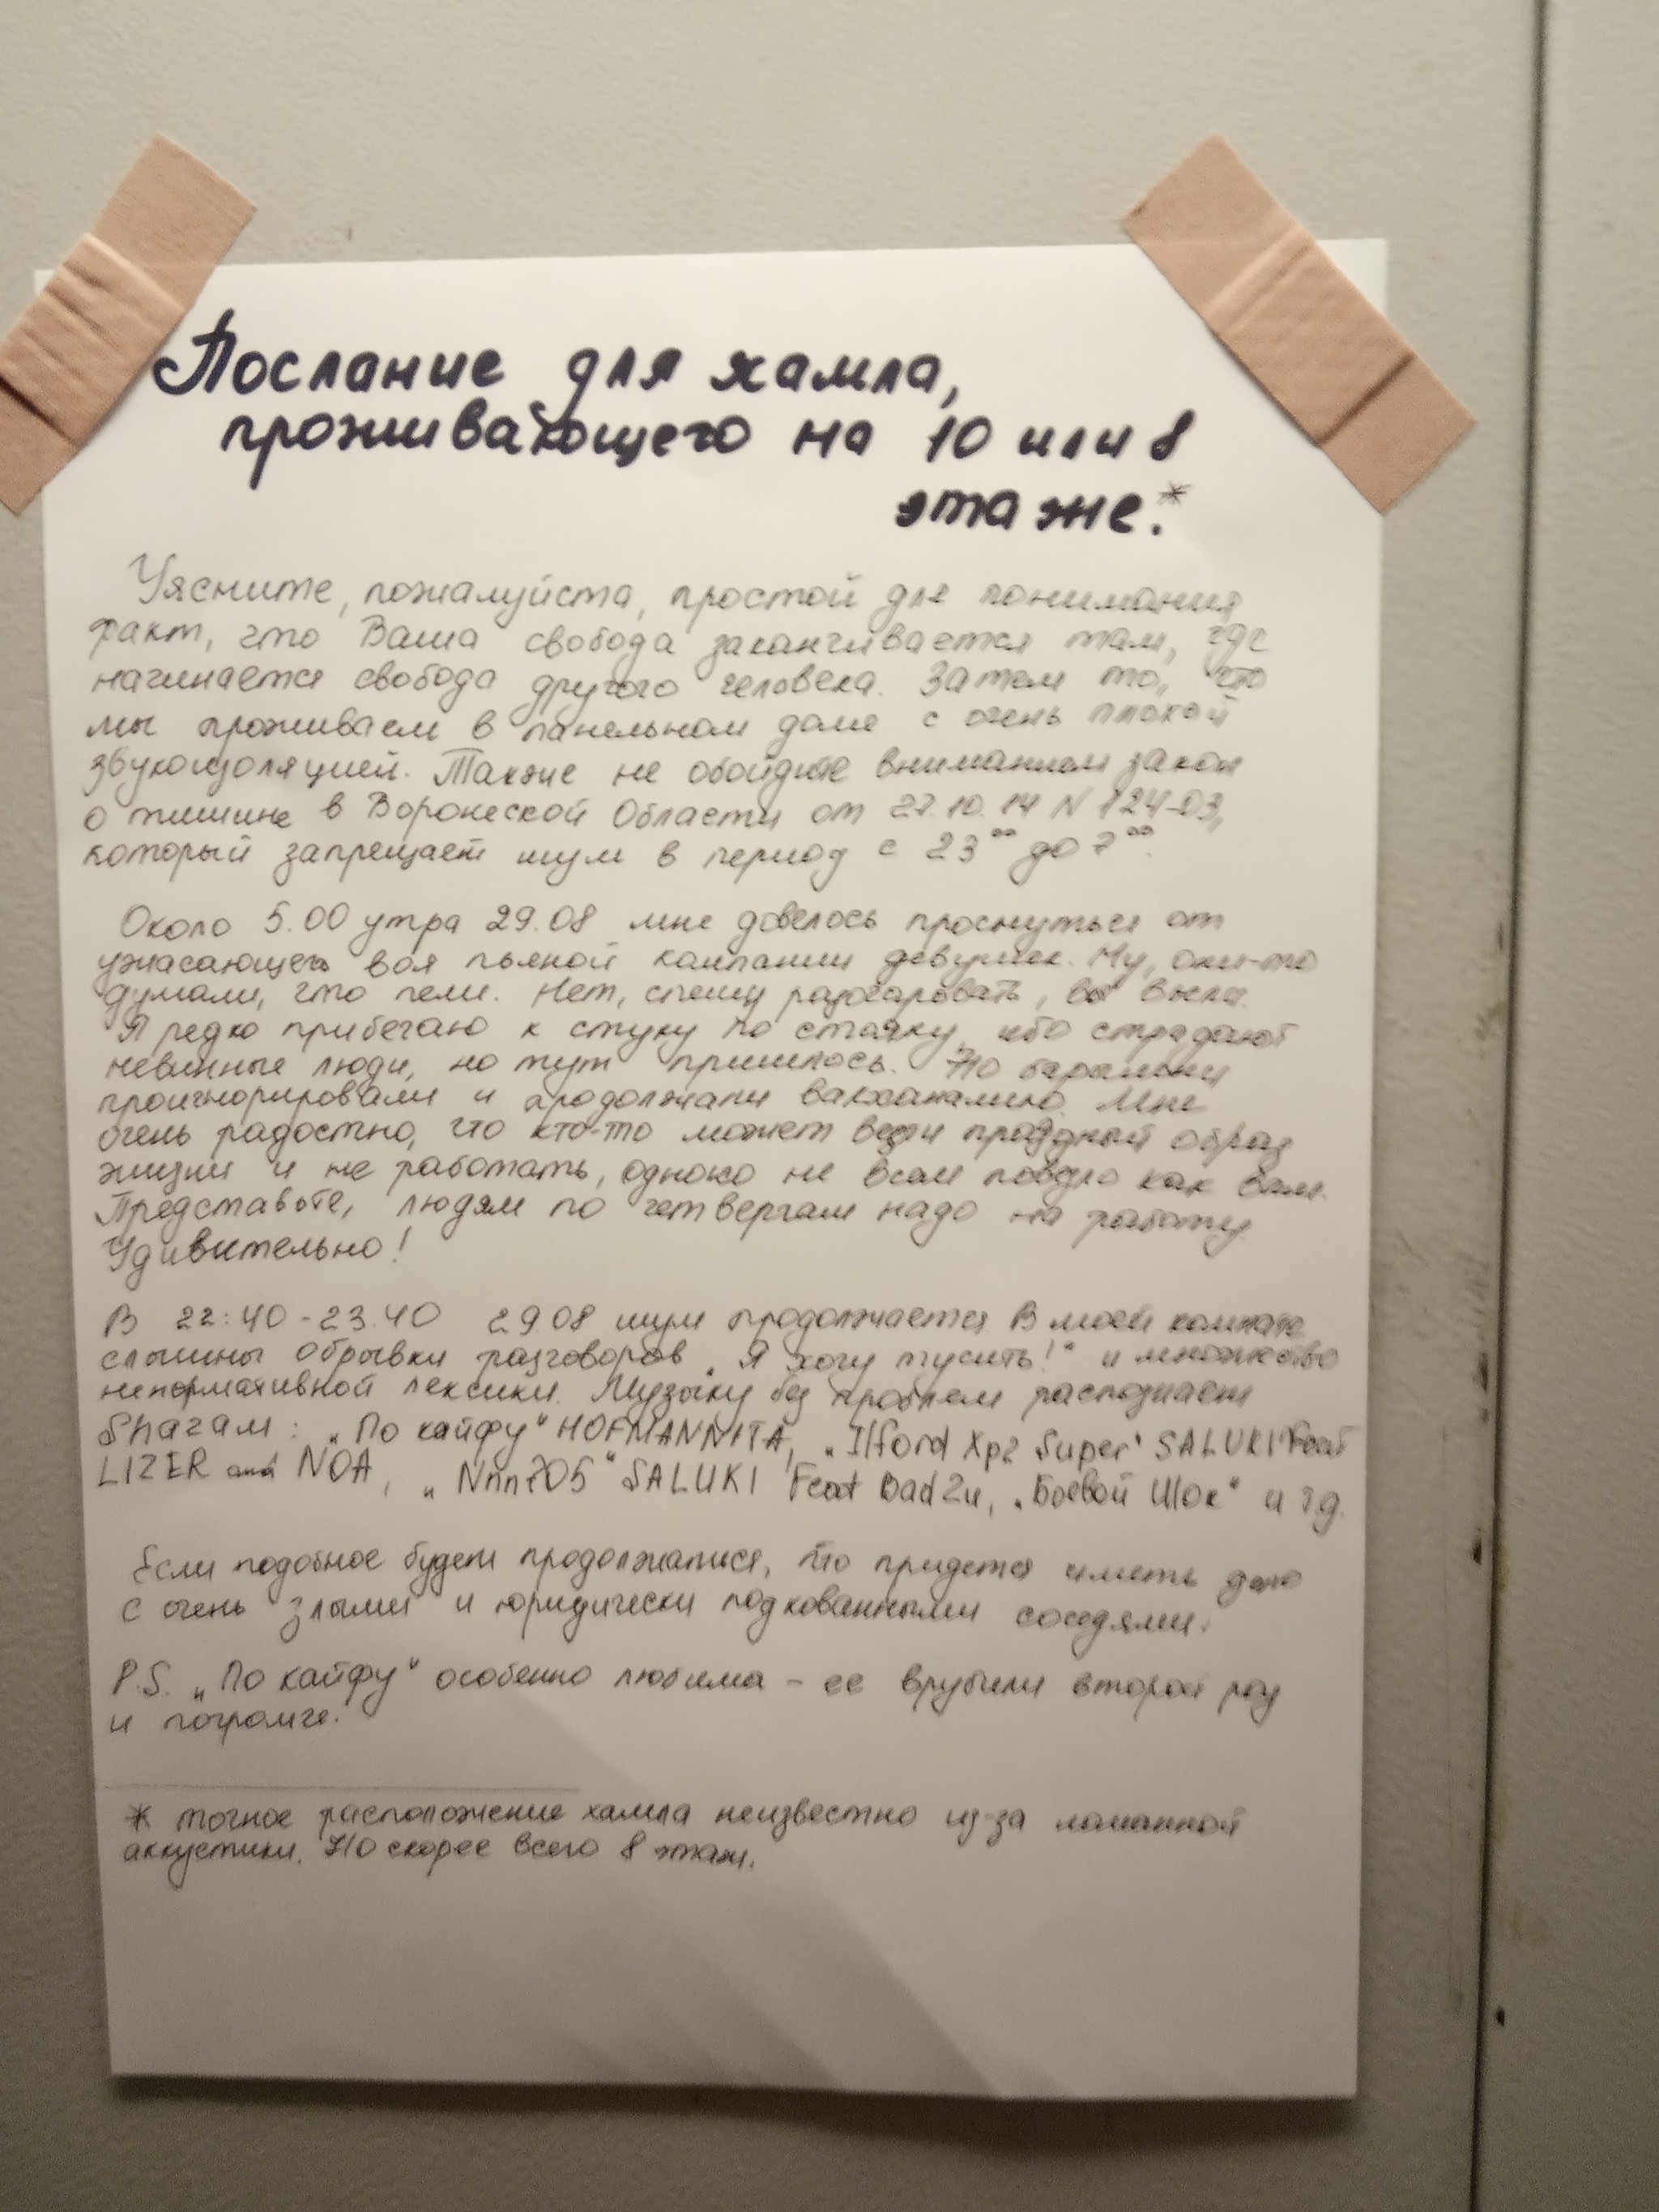 Послание для хамла,
проживающего на 10 или 8
этаже.*
Уясните, пожалуйста, простой для понимания
факт, что Ваша свобода заканчивается там, где
начинается свобода другого человека. Затем то, что
мы проживаем в панельном доме с очень плохой
звукоизоляцией. Также не обойдите вниманием закон
о тишине в Воронеской Области от 27.10.14 N 124-ОЗ,
который запрещает шум в период с 23⁰⁰ до 7⁰⁰.
Около 5.00 утра 29.08 мне довелось проснуться от
ужасающего воя пьяной кампании девушек. Ну, они-то
думали, что пели. Нет, спешу разочаровать, вы выли.
Я редко прибегаю к стуку по стояку, ибо страдают
невинные люди, но тут пришлось. Но барышни
проигнорировали и продолжали вакханалию. Мне
очень радостно, что кто-то может вести праздный образ
жизни и не работать, однако не всем повезло как вам.
Представьте, людям по четвергам надо на работу.
Удивительно!
В 22:40-23.40 29.08 шум продолжается. В моей комнате
слышны обрывки разговоров „Я хочу тусить!“ и множество
ненормативной лексики. Музыку без проблем распознает
Shazam: „По кайфу“ HOFMANNITA, „Ilford Xp2 Super“ SALUKI Feat
LIZER and NOA, „ SALUKI Feat Bad Zu, „Боевой Шок“ и т.д.
Если подобное будет продолжаться, то придется иметь дело
с очень злыми и юридически подкованными соседями.
P.S. „По кайфу“ особенно любима - ее врубили второй раз
и погромче.
* точное расположение хамла неизвестно из-за ломанной
аккустики. Но скорее всего 8 этаж.